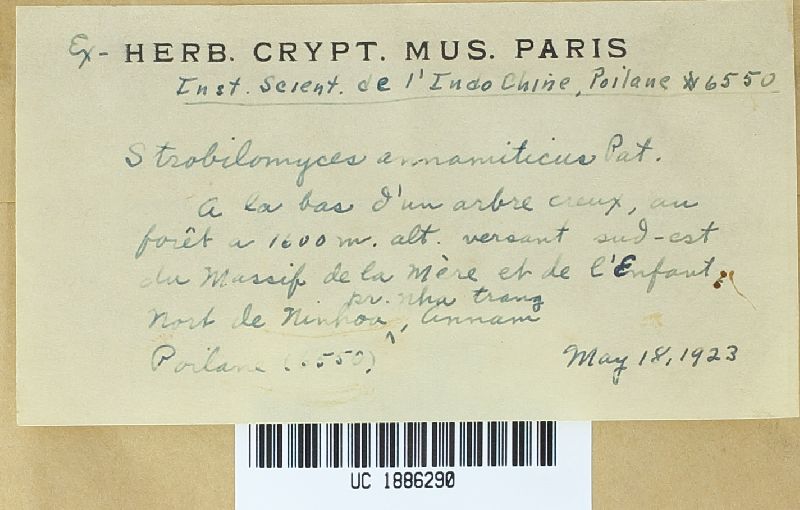 Ex- HERB. CRYPT. MUS. PARIS
Inst. Scient. de l'IndoChine, Poilane № 6550
Strobilomyces annamiticus Pat.
A la bas d'un arbre creux, au
forêt a 1600 m. alt. versant sud-est
du Massif de la Mère et de l'Enfant,
pr. nha trang
Nort de Ninhoa ^, Annam
Poilane (6550)
May 18, 1923
UC 1886290